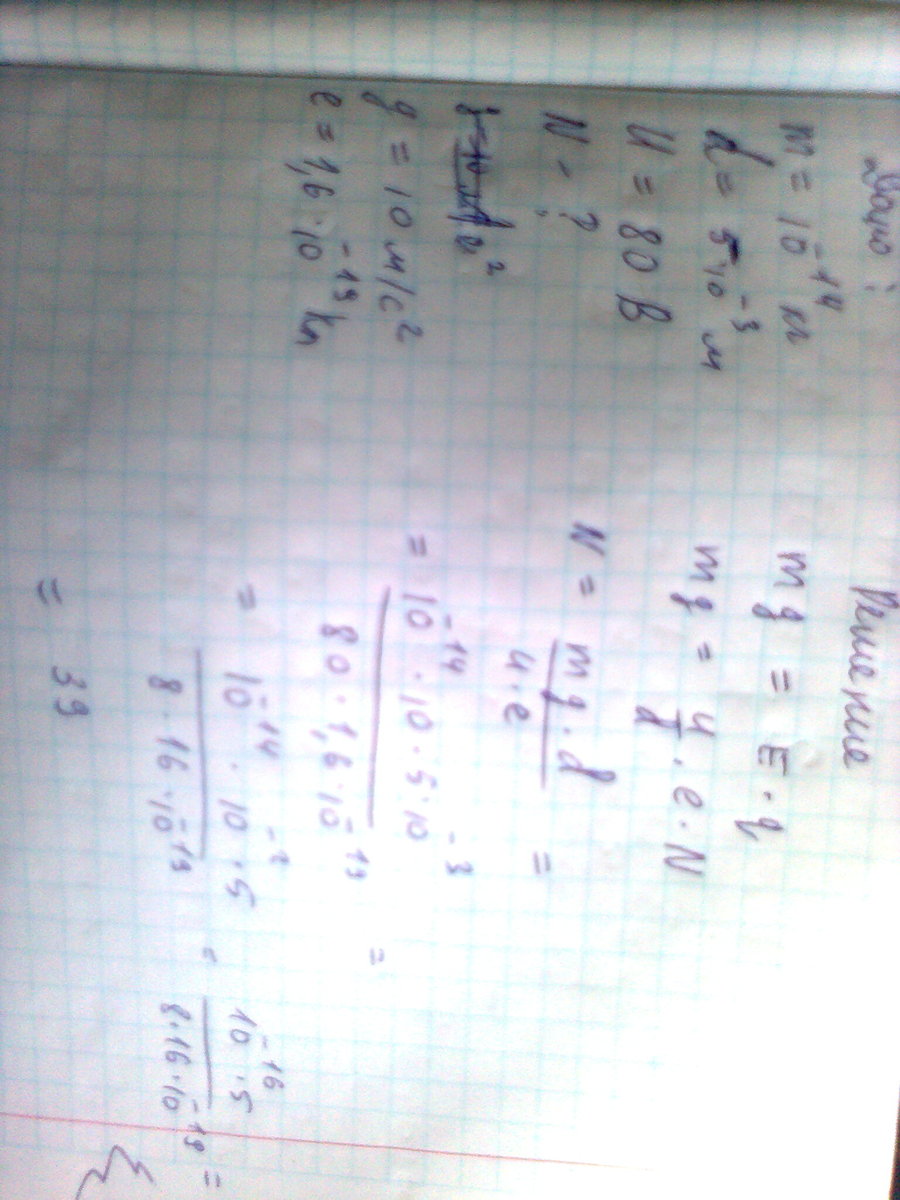 Дано:
m = 10⁻¹⁴ кг
d = 5·10⁻³ м
U = 80 В
N - ?
g = 10 м/с²
e = 1,6·10⁻¹⁹ Кл
Решение
mg = E·q
mg = U/d · e · N
N = mg·d / U·e =
= 10⁻¹⁴·10·5·10⁻³ / 80·1,6·10⁻¹⁹ =
= 10⁻¹⁴·10⁻²·5 / 8·16·10⁻¹⁹ = 10⁻¹⁶·5 / 8·16·10⁻¹⁹ =
= 39